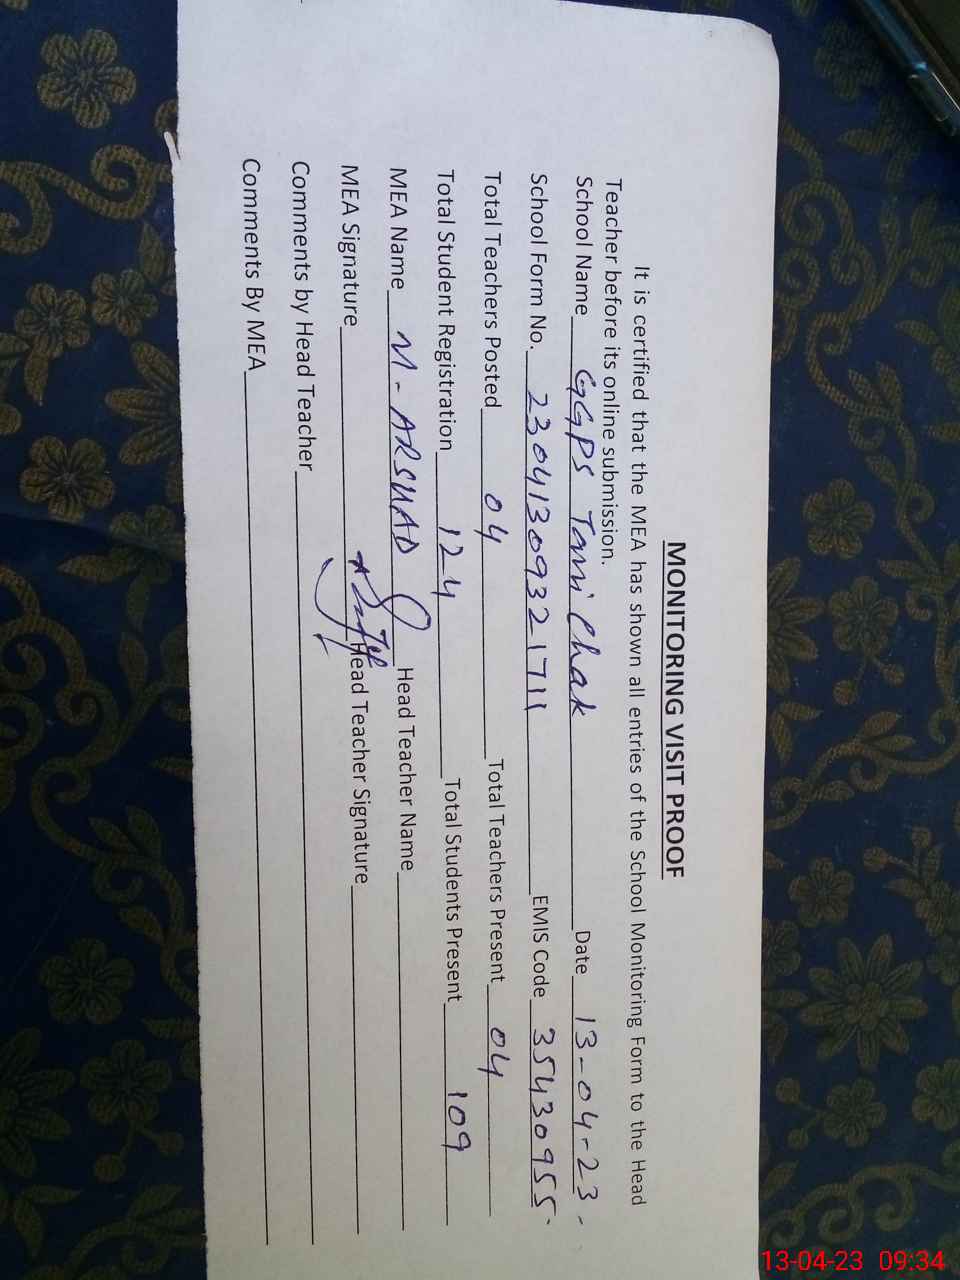 MONITORING VISIT PROOF
It is certified that the MEA has shown all entries of the School Monitoring Form to the Head
Teacher before its online submission.
School Name GGPS Tami Chak Date 13-04-23
School Form No. 23041309321711 EMIS Code 35430955
Total Teachers Posted 04 Total Teachers Present 04
Total Student Registration 124 Total Students Present 109
MEA Name M-ARSHAD Head Teacher Name
MEA Signature Head Teacher Signature
Comments by Head Teacher
Comments By MEA
13-04-23 09:34